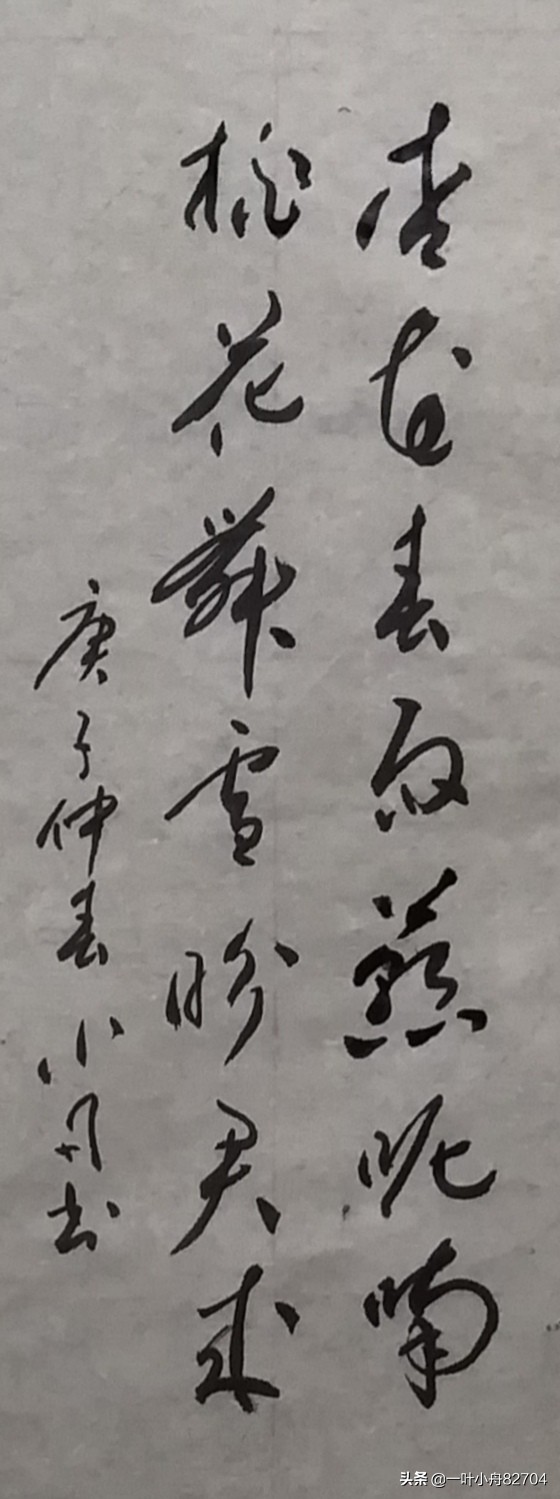 杏在春风燕呢喃
桃花舞雪盼君来
庚子仲春小舟书
头条 @一叶小舟82704